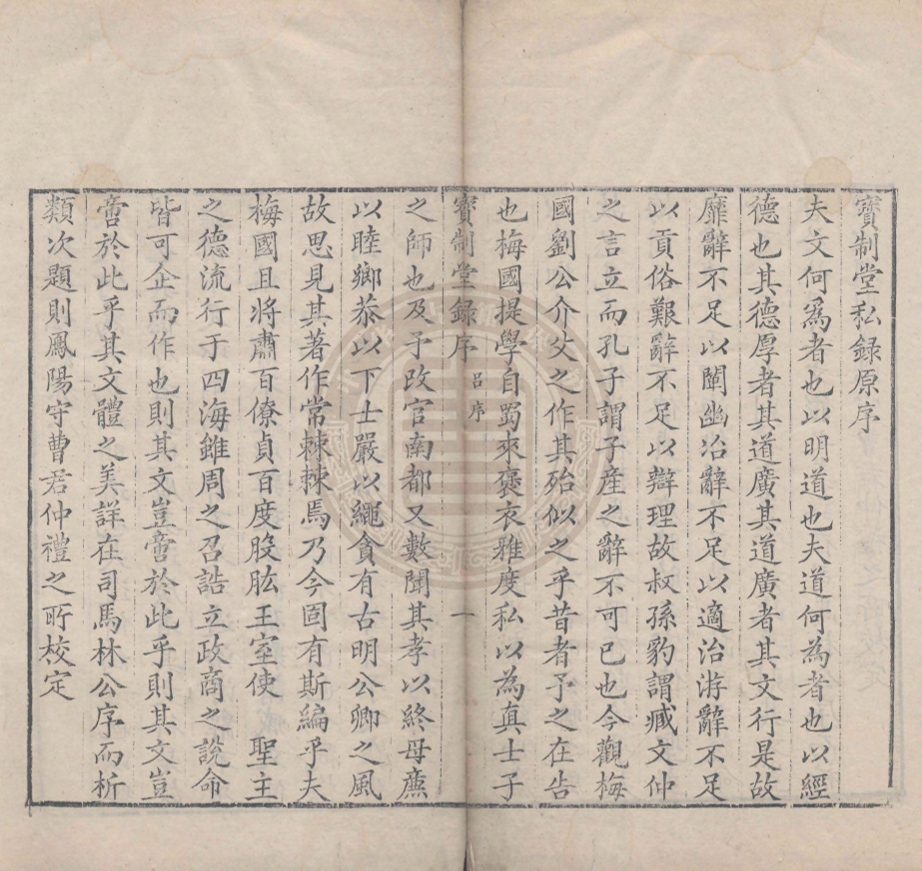 寶制堂私録原序
夫文何爲者也以明道也夫道何為者也以經
德也其德厚者其道廣其道廣者其文行是故
靡辭不足以闡幽冶辭不足以適治游辭不足
以貢俗艱辭不足以辯理故叔孫豹謂臧文仲
之言立而孔子謂子産之辭不可已也今觀梅
國劉公介父之作其殆似之乎昔者予之在告
也梅國提學自蜀來褒衣雅度私以為真士子
寶制堂録序 吕序 一
之師也及予改官南都又數聞其孝以終母廉
以睦鄉恭以下士嚴以繩貪有古明公卿之風
故思見其著作常棘棘焉乃今固有斯編乎夫
梅國且將肅百僚貞百度股肱王室使 聖主
之德流行于四海雖周之召誥立政商之說命
皆可企而作也則其文豈啻於此乎則其文豈
啻於此乎其文體之美詳在司馬林公序而析
類次題則鳳陽守曹君仲禮之所校定